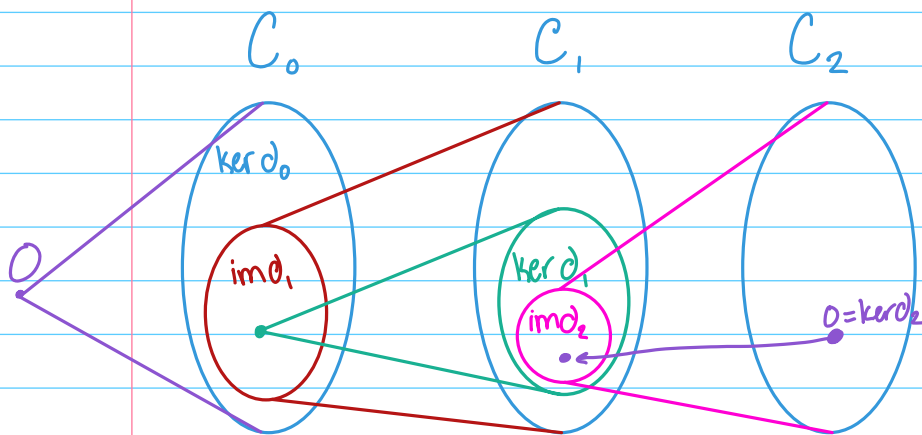 C₀ C₁ C₂
ker d₀
0 im d₁ ker d₁
im d₂ 0 = ker d₂